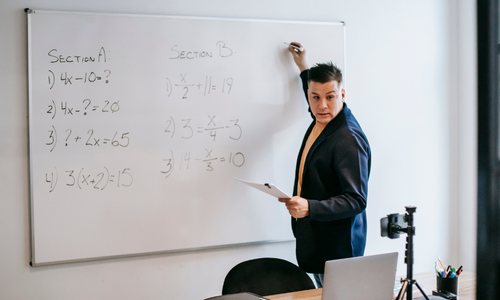 SECTION A
1) 4x-10=?
2) 4x-?=20
3) ?+2x=65
4) 3(x+2)=15
SECTION B
1) x/2+11=19
2) 3=x/4-3
3) 14-x/3=10